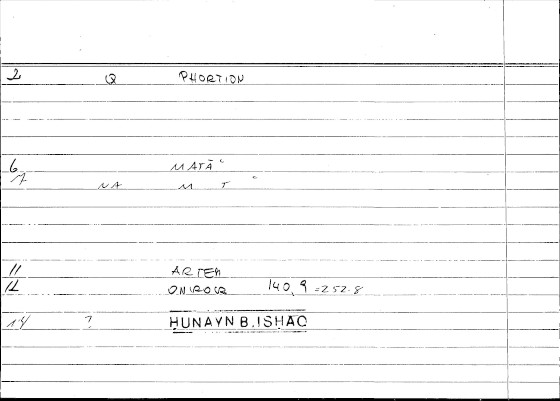 2 Q PHORTION
6 MATĀ ʿ
7 NA M T ʿ
11 ARTEM
12 ONIROCR 140,9 = 252.8
14 ? HUNAYN B. ISHAQ